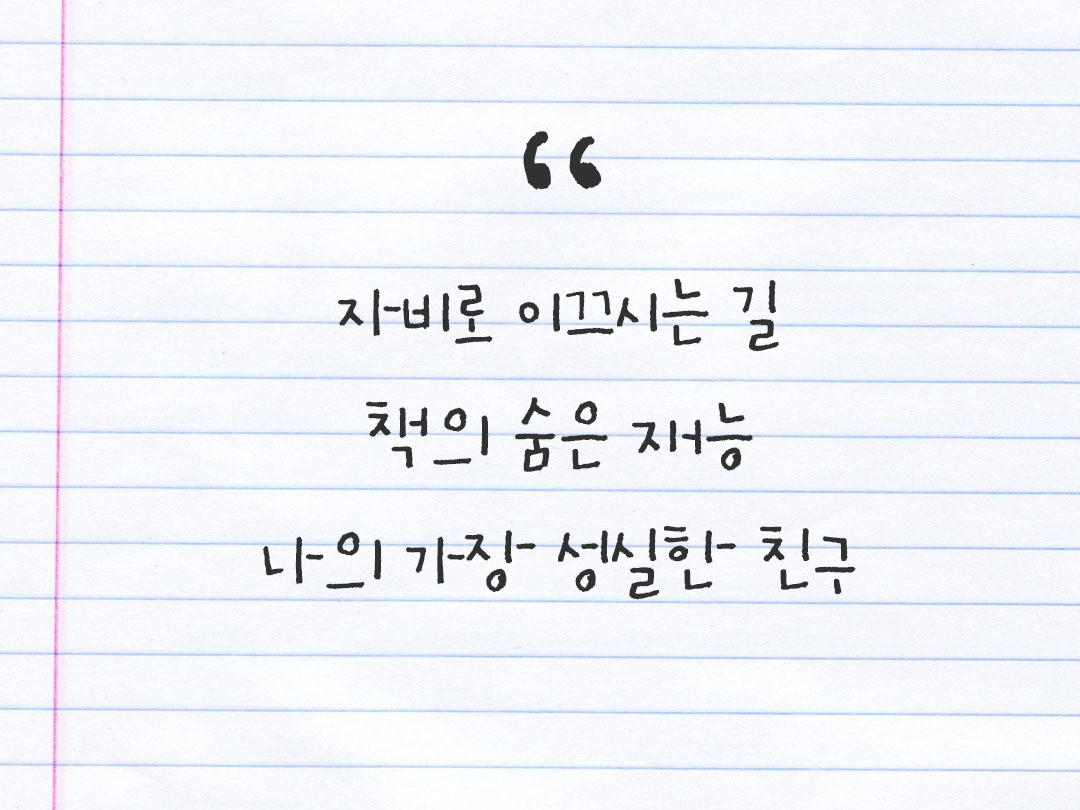 “
자비로 이끄시는 길
책의 숨은 재능
나의 가장 성실한 친구